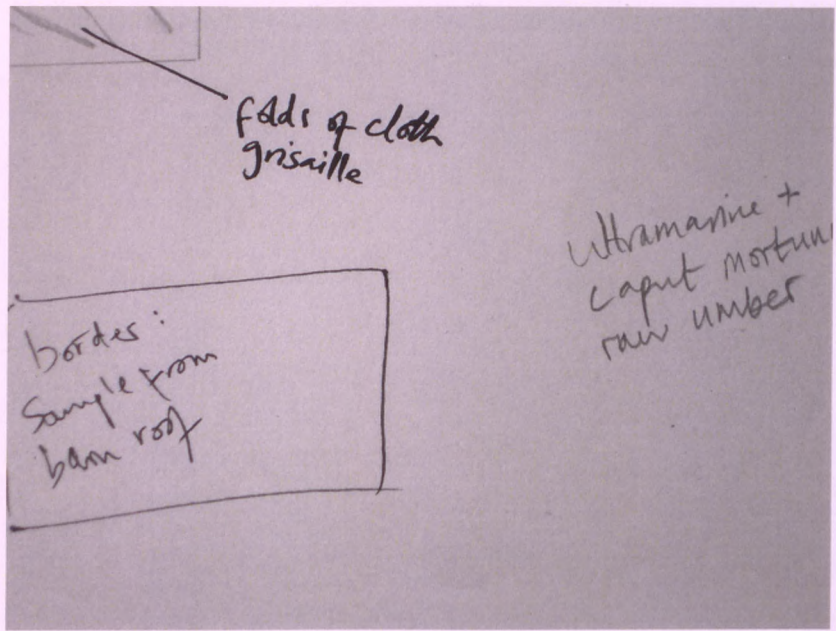 folds of cloth
grisaille
ultramarine +
caput mortuu
raw umber
border:
Sample from
barn roof